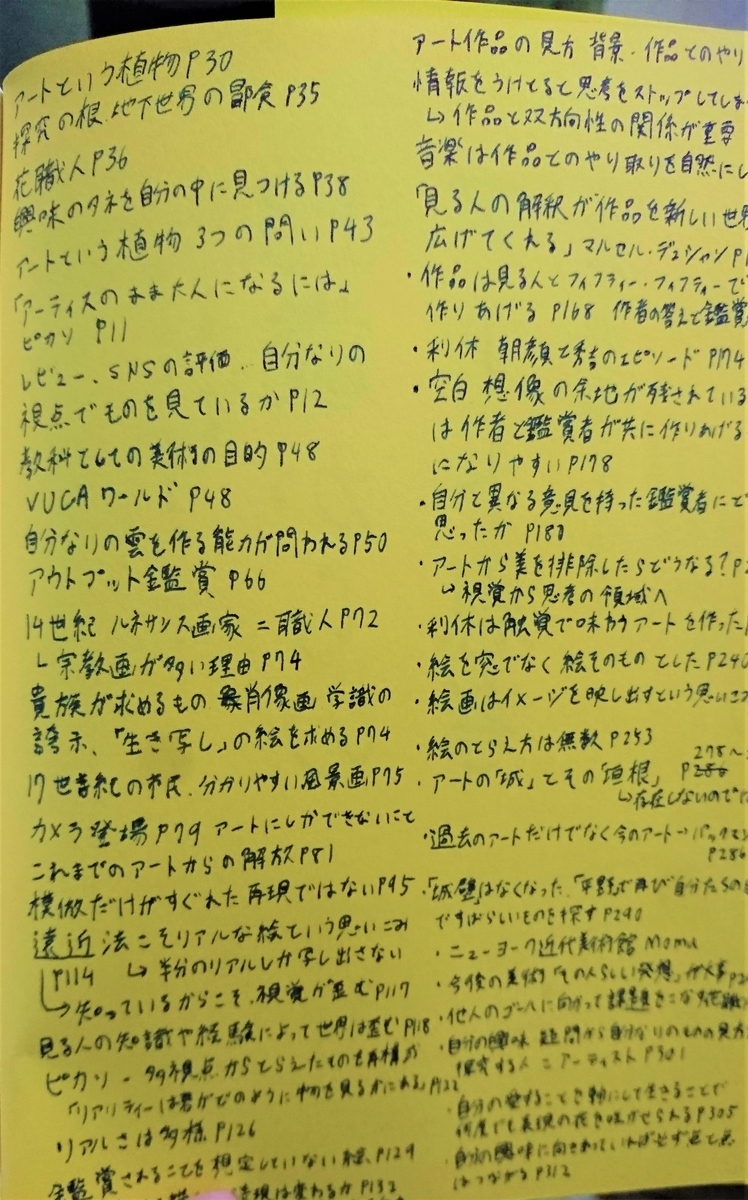 アートという植物P30
探究の根.地下世界の
P35
花職人P36
興味のタネを自分の中に見つけるP38
アートという植物 3つの問いP43
「アーティスのまま大人になるには」
ピカソ P11
レビュー、SNSの評価..自分なりの
視点でものを見ているかP12
教科としての美術の目的 P48
VUCAワールド P48
自分なりの雲を作る能力が問われるP50
アウトプット鑑賞 P66
14世紀 ルネサンス画家=職人P72
└宗教画が多い理由P74
貴族が求めるもの 肖像画 学識の
誇示、「生き写し」の絵を求めるP74
17世紀の市民.分かりやすい風景画P75
カメラ登場P79 アートにしかできないこと
これまでのアートからの解放P81
模倣だけがすぐれた再現ではないP95
遠近法こそリアルな絵という思いこみ
P114 ↳半分のリアルしか写し出さない
↳知っているからこそ.視覚が歪むP117
見る人の知識や経験によって世界は歪むP118
ピカソ-多視点からとらえたものを再構成
「リアリティーは君がどのように物を見るかにある」P122
リアルさは多様P126
鑑賞されることを想定していない絵P129
表現は変わるかP132
アート作品の見方 背景・作品とのやり
情報をうけとると思考をストップしてしま
↳作品と双方向性の関係が重要
音楽は作品とのやり取りを自然にし
「見る人の解釈が作品を新しい世界
広げてくれる」マルセル・デュシャンP1
・作品は見る人とフィフティー・フィフティーで
作りあげる P168 作者の答えと鑑賞
・利休 朝顔と秀吉のエピソード P174
・空白 想像の余地が残されている
は作者と鑑賞者が共に作りあげる
になりやすいP178
・自分と異なる意見を持った鑑賞者にど
思ったか P180
・アートから美を排除したらどうなる?P2
↳視覚から思考の領域へ
・利休は触覚で味わうアートを作った
・絵を窓でなく 絵そのものとしたP240
・絵画はイメージを映し出すという思いこ
・絵のとらえ方は無数 P253
278~
・アートの「城」とその「垣根」 P
↳存在しないので
・過去のアートだけでなく今のアート→
P286
・「城壁」はなくなった.「平野で再び自分たちの
ですばらしいものを探す P290
・ニューヨーク近代美術館 MomA
・今後の美術「その人らしい発想」が大事P2
・他人のゴールに向かって課題をこなす花職
・自分の興味 疑問から自分なりのものの見方
探究する人=アーティストP301
・自分の愛することを軸にして生きることで
何度でも表現の花を咲かせられるP305
・自分の興味に向きあっていれば必ず点と点
はつながるP312